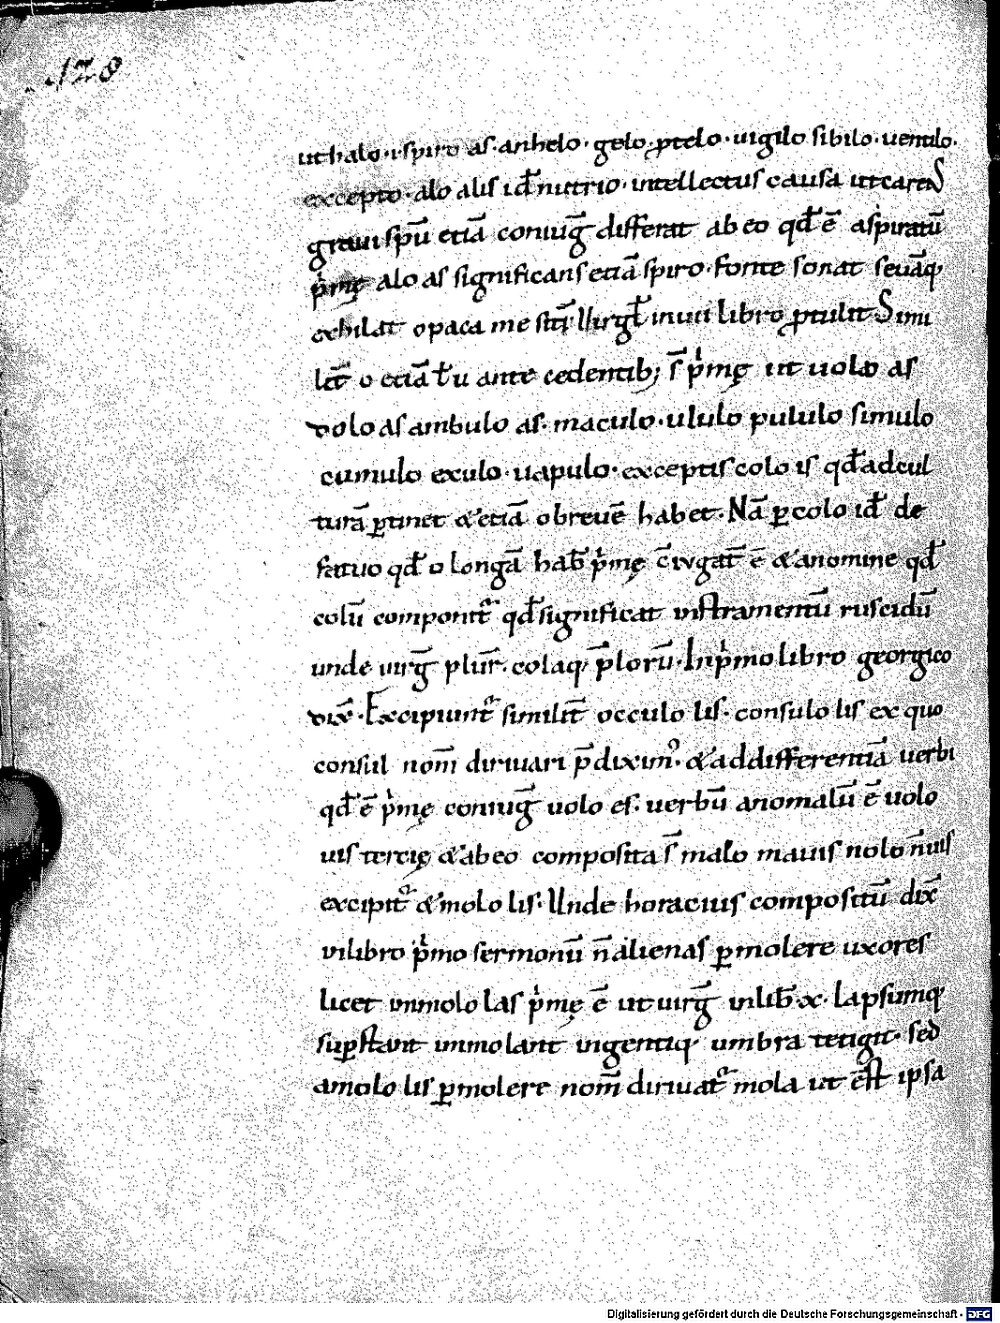 .128
ut halo .i. spiro as. anhelo. gelo. ꝓtelo. uigilo sibilo. uentilo.
excepto. alo alis id̄ nutrio. intellectus causa ut carenS
graui spū etiā coniuḡ differat ab eo qd̄ ē aspiratū
p̍mę alo as significans etiā spiro. fonte sonat
exhilat opaca me Uirgł in uii libro ꝓtulit Simi
o etiā ł u ante cedentibꝫ s̄ p̍mę ut uolo as
dolo as ambulo as. maculo. ululo pululo simulo
cumulo exulo. uapulo. exceptis colo is qd̄ ad cul
turā ꝑtinet & etiā o breuē habet. Nā ꝑcolo id̄ de
fatuo qd̄ o longā hab̄ p̍mę c̄iugat̄ ē & a nomine qd̄
colū componit᷑ qd̄ significat instramentū ruscidū
unde uirḡ plur̄. colaq. p̄lorū. In p̍mo libro georgico
dix̄. Excipiunt᷑ similit̄ occulo lis. consulo lis ex quo
consul nom̄ diriuari p̄diximꝰ. & ad differentiā uerbi
qd̄ ē p̍mę coniuḡ uolo es. uerbū anomalū ē uolo
uis tercię & ab eo composita s̄ malo mauis nolo n̄uis
excipit᷑ & molo lis. Unde horacius compositū dix̄
in libro p̍mo sermonū n̄ alienas ꝑmolere uxores
licet inmolo las p̍mę ē ut uirḡ in lib̄ x. lapsumq
suꝑstant immolant ingentiq. umbra tetigit. sed
a molo lis ꝑmolere nom̄ diriuat᷑ mola ut ēst ipsa
Digitalisierung gefördert durch die Deutsche Forschungsgemeinschaft - DFG